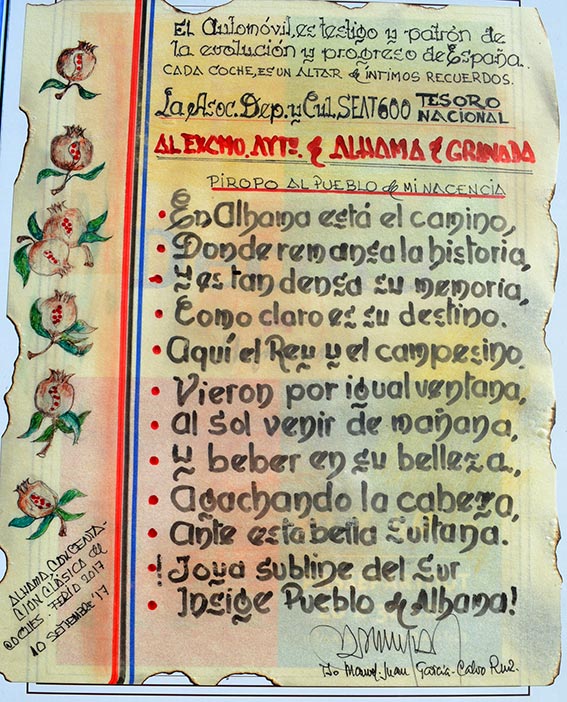 El Automóvil, es testigo y patrón de
la evolución y progreso de España.
CADA COCHE, ES UN ALTAR de ÍNTIMOS RECUERDOS.
La Asoc. Dep. y Cul. SEAT 600 TESORO NACIONAL
AL EXCMO. AYTº. de ALHAMA de GRANADA
PIROPO AL PUEBLO de MI NACENCIA
En Alhama está el camino,
Donde remansa la historia,
Y es tan densa su memoria,
Como claro es su destino.
Aquí el Rey y el campesino
Vieron por igual ventana,
Al Sol venir de mañana,
Y beber en su belleza,
Agachando la cabeza,
Ante esta bella Sultana.
¡Joya subline del Sur
Insige Pueblo de Alhama!
ALHAMA, CONCENTA-
CION CLÁSICA de
COCHES. FERIA 2017
10 SETIEMBRE '17
Manuel-Juan García-Calvo Ruiz.